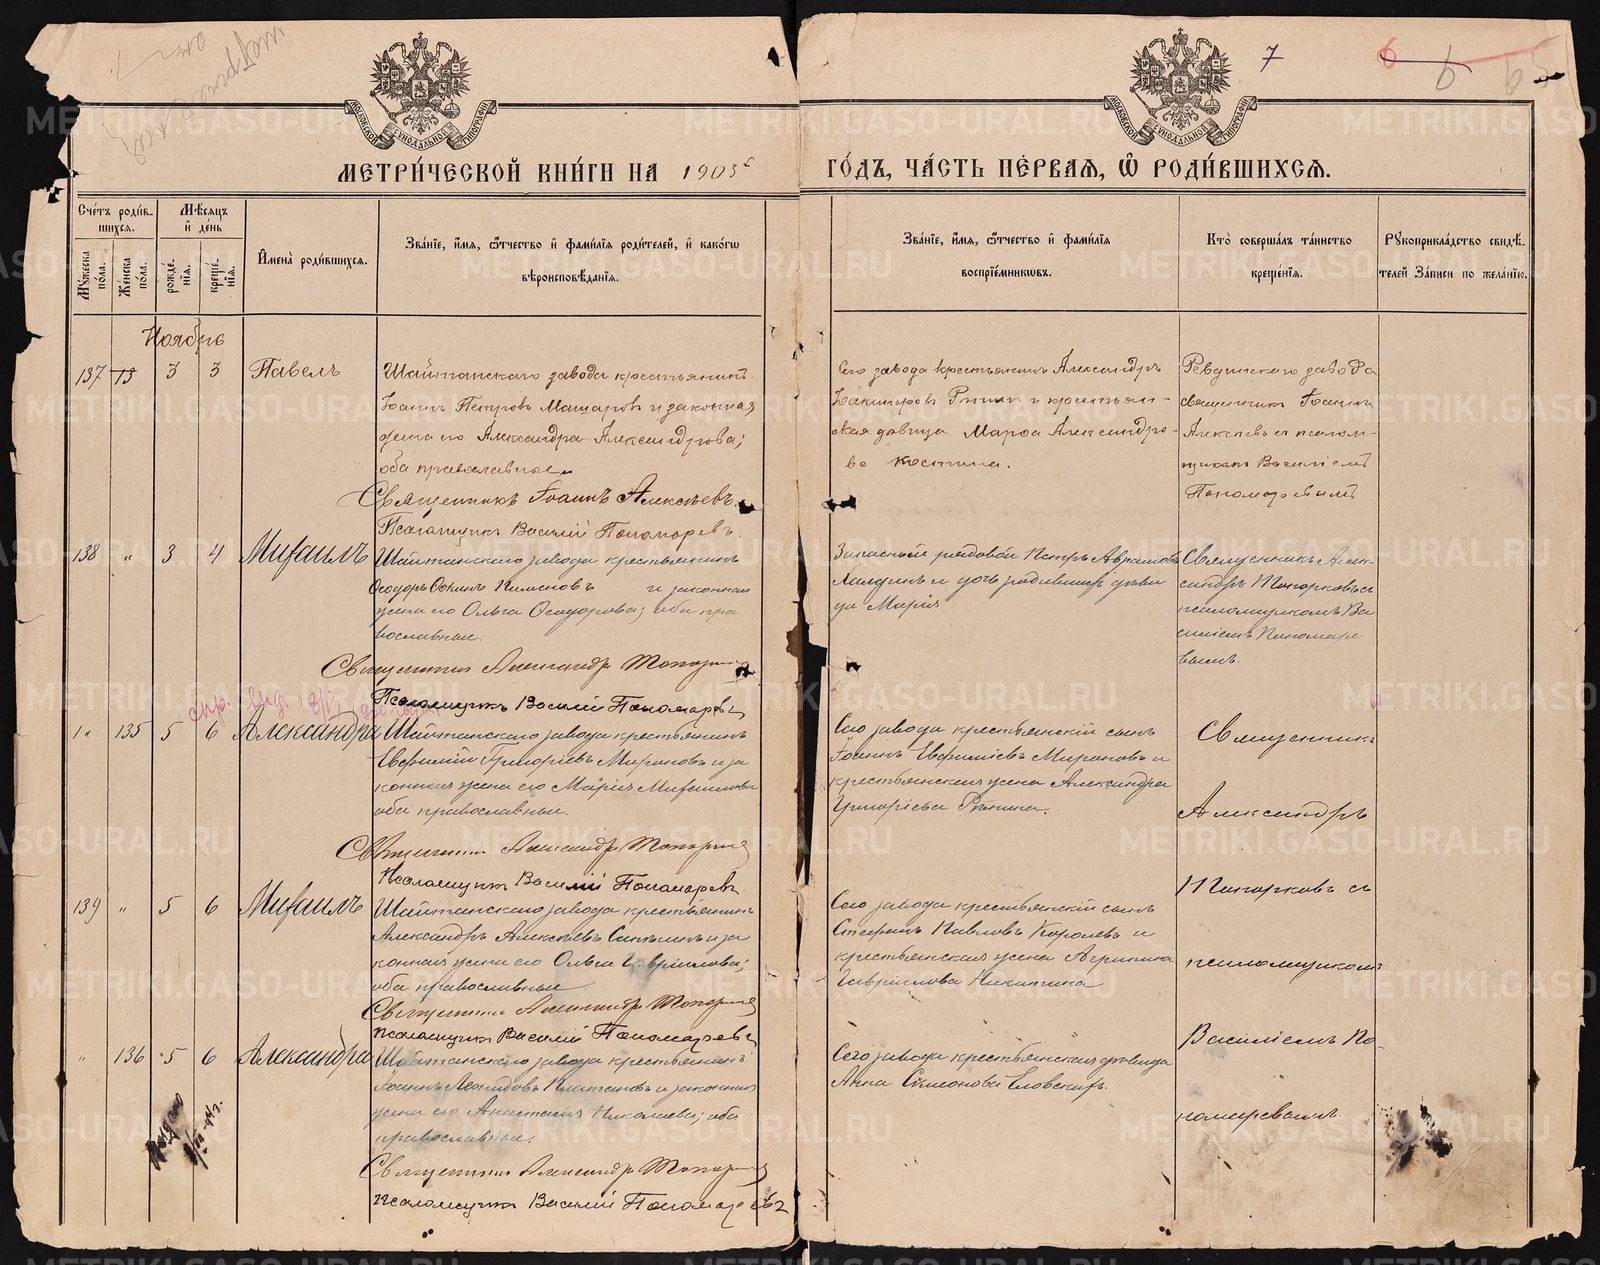 7
МЕТРИ́ЧЕСКОЙ КНИ́ГИ НА 1903 г
ГО́ДЪ, ЧА́СТЬ ПЕ́РВАЯ, Ѿ РОДИ́ВШИХСЯ.
МОСКОВСКОЙ СѴНОДАЛЬНОЙ ТИПОГРАФІИ
МОСКОВСКОЙ СѴНОДАЛЬНОЙ ТИПОГРАФІИ
Сче́тъ роди́вшихся.
Му́жеска по́ла.
Же́нска по́ла.
Мѣ́сяцъ и҆ де́нь
рожде́нїя.
креще́нїя.
И҆мена̀ роди́вшихся.
Зва́нїе, и҆́мя, ѻ҆́тчество и҆ фами́лїя роди́телей, и҆ како́гѡ вѣроисповѣ́данїя.
Зва́нїе, и҆́мя, ѻ҆́тчество и҆ фами́лїя воспрїе́мниковъ.
Кто̀ соверша́лъ та́инство креще́нїя.
Рꙋкоприкла́дство свидѣ́телей за́писи по жела́нїю.
Ноябрь
137 3 3 Павелъ
Шайтанскаго завода крестьянинъ
Іоаннъ Петровъ Мащаровъ и законная
жена его Александра Александрова;
оба православные
Священникъ Іоаннъ Алексѣевъ.
Псаломщикъ Василій Пономаревъ.
Сего завода крестьянинъ Александръ
и крестьян-
ская дѣвица Марѳа Александро-
ва Костина.
Ревдинскаго завода
священникъ Іоаннъ
Алексѣевъ съ псалом-
щикомъ Василіемъ
Пономаревымъ
138 " 3 4 Михаилъ
Шайтанскаго завода крестьянинъ
Ѳеодоръ и законная
жена его Ольга Ѳеодорова; оба пра
вославные.
Священникъ Александръ Топорковъ
Псаломщикъ Василій Пономаревъ
Запасный рядовой Петръ Аврамовъ
и дочь дѣви
ца Марія
Священникъ Алек-
сандръ Топорковъ съ
псаломщикомъ Ва
силіемъ Пономаре
вымъ.
" 135 5 6 Александра
Шайтанскаго завода крестьянинъ
Евфимій Григоріевъ Мироновъ и за
конная жена его Марія Михаилова
оба православные.
Священникъ Александръ Топорковъ
Псаломщикъ Василій Пономаревъ
Сего завода крестьянскій сынъ
Іоаннъ Евфиміевъ Мироновъ и
крестьянская жена Александра
Григоріева Рыкина.
Священникъ
Александръ
Топорковъ съ
псаломщикомъ
Василіемъ По-
номаревымъ
139 " 5 6 Михаилъ
Шайтанскаго завода крестьянинъ
Александръ Алексѣевъ и за
конная жена его Ольга Гавріилова;
оба православные
Священникъ Александръ Топорковъ
Псаломщикъ Василій Пономаревъ
Сего завода крестьянскій сынъ
Стефанъ Павловъ Королевъ и
крестьянская жена Агрипина
Гавріилова Никитина
" 136 5 6 Александра
Шайтанскаго завода крестьянинъ
Іоаннъ Леонидовъ и законная
жена его Анастасія Николаева; оба
православные.
Священникъ Александръ Топорковъ
Псаломщикъ Василій Пономаревъ
Сего завода крестьянская дѣвица
Анна Симонова Еловскихъ.
METRIKI.GASO-URAL.RU